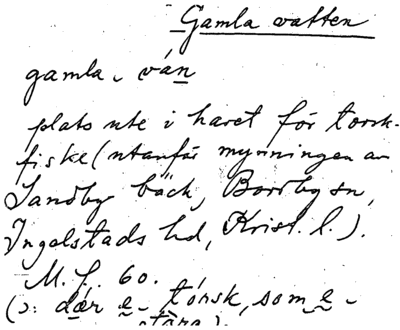 Gamla vatten
gamla ván
plats ute i havet för torsk-
fiske (utanför mynningen av
Sandby bäck, Borrby sn,
Ingelstads hd, Krist. l.).
M. f. 60.
(ɔ: dær e torsk, som e
störa).